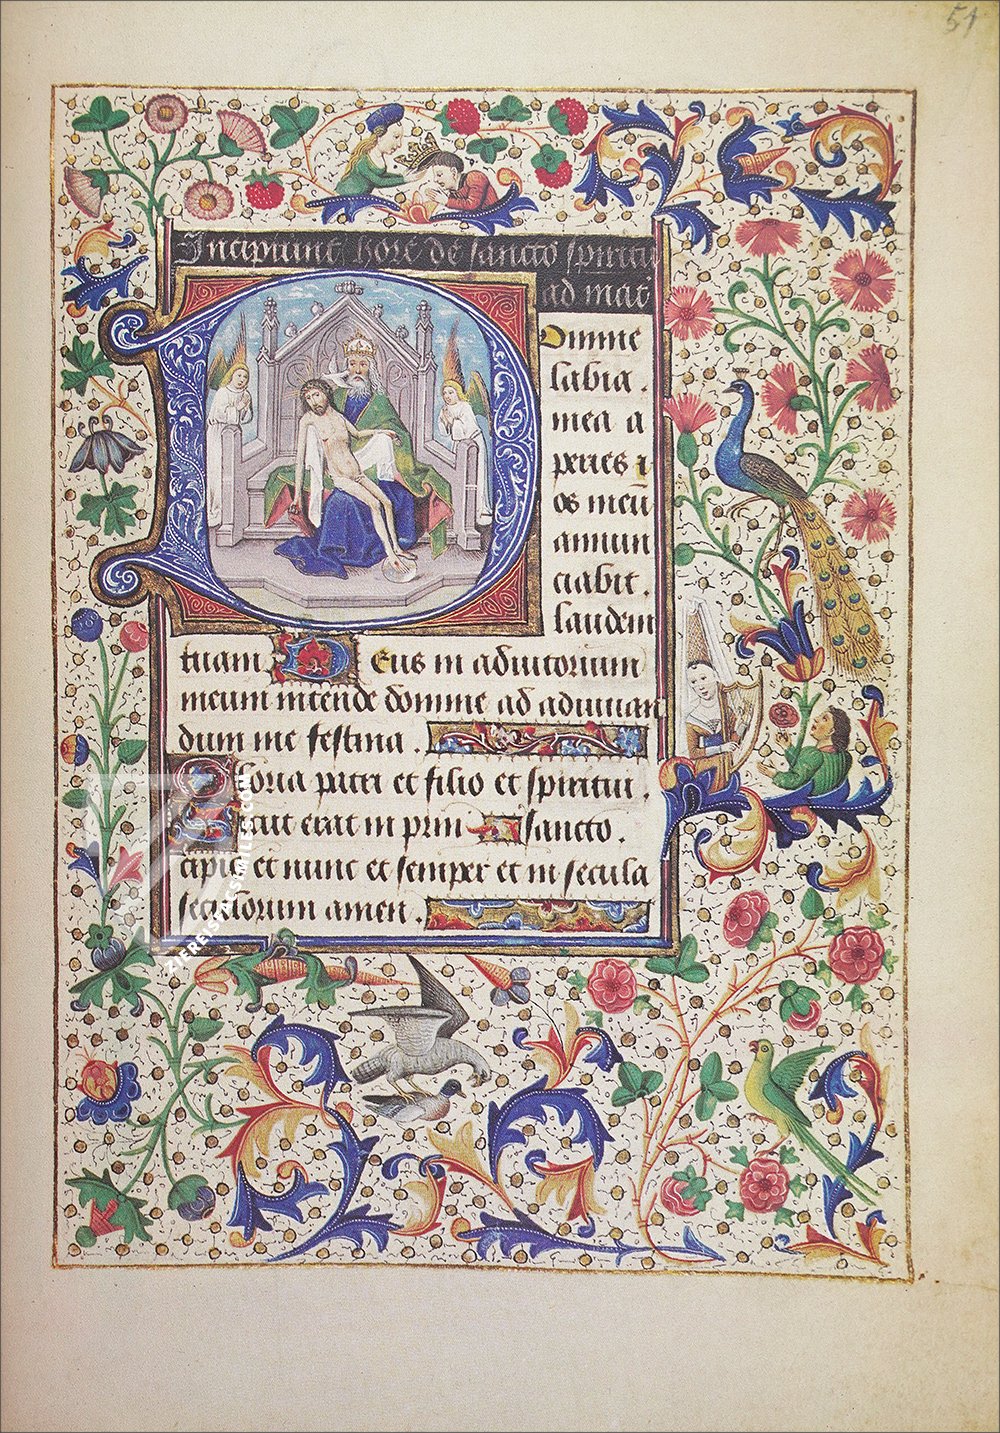 51
Incipiunt hore de sancto spiritu
ad mat
Domine
labia .
mea a
peries 
os meu
annun
ciabit .
laudem
tuam Deus in adiutorium
meum intende domine ad adiuuan
dum me festina .
Gloria patri et filio et spiritui .
Sicut erat in prin sancto .
cipio et nunc et semper et in secula
seculorum amen .
ZIEREIS FACSIMILES.COM